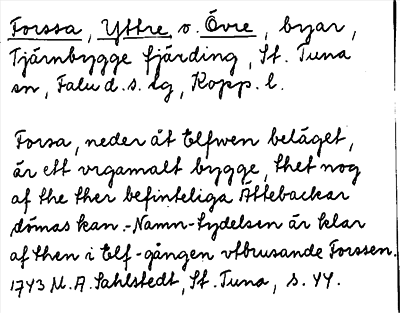 Forssa, Yttre o. Övre, byar,
Tjärnbygge fjärding, St. Tuna
sn, Falu d.s. lg, Kopp. l.
Forsa, neder åt Elfwen beläget,
är ett vrgamalt bygge, thet nog
af the ther befinteliga Ättebackar
dömas kan.-Namn-tydelsen är klar
af then i Elf-gången vtbrusande Forssen.
1743 M. A. Sahlstedt, St. Tuna, s. 44.